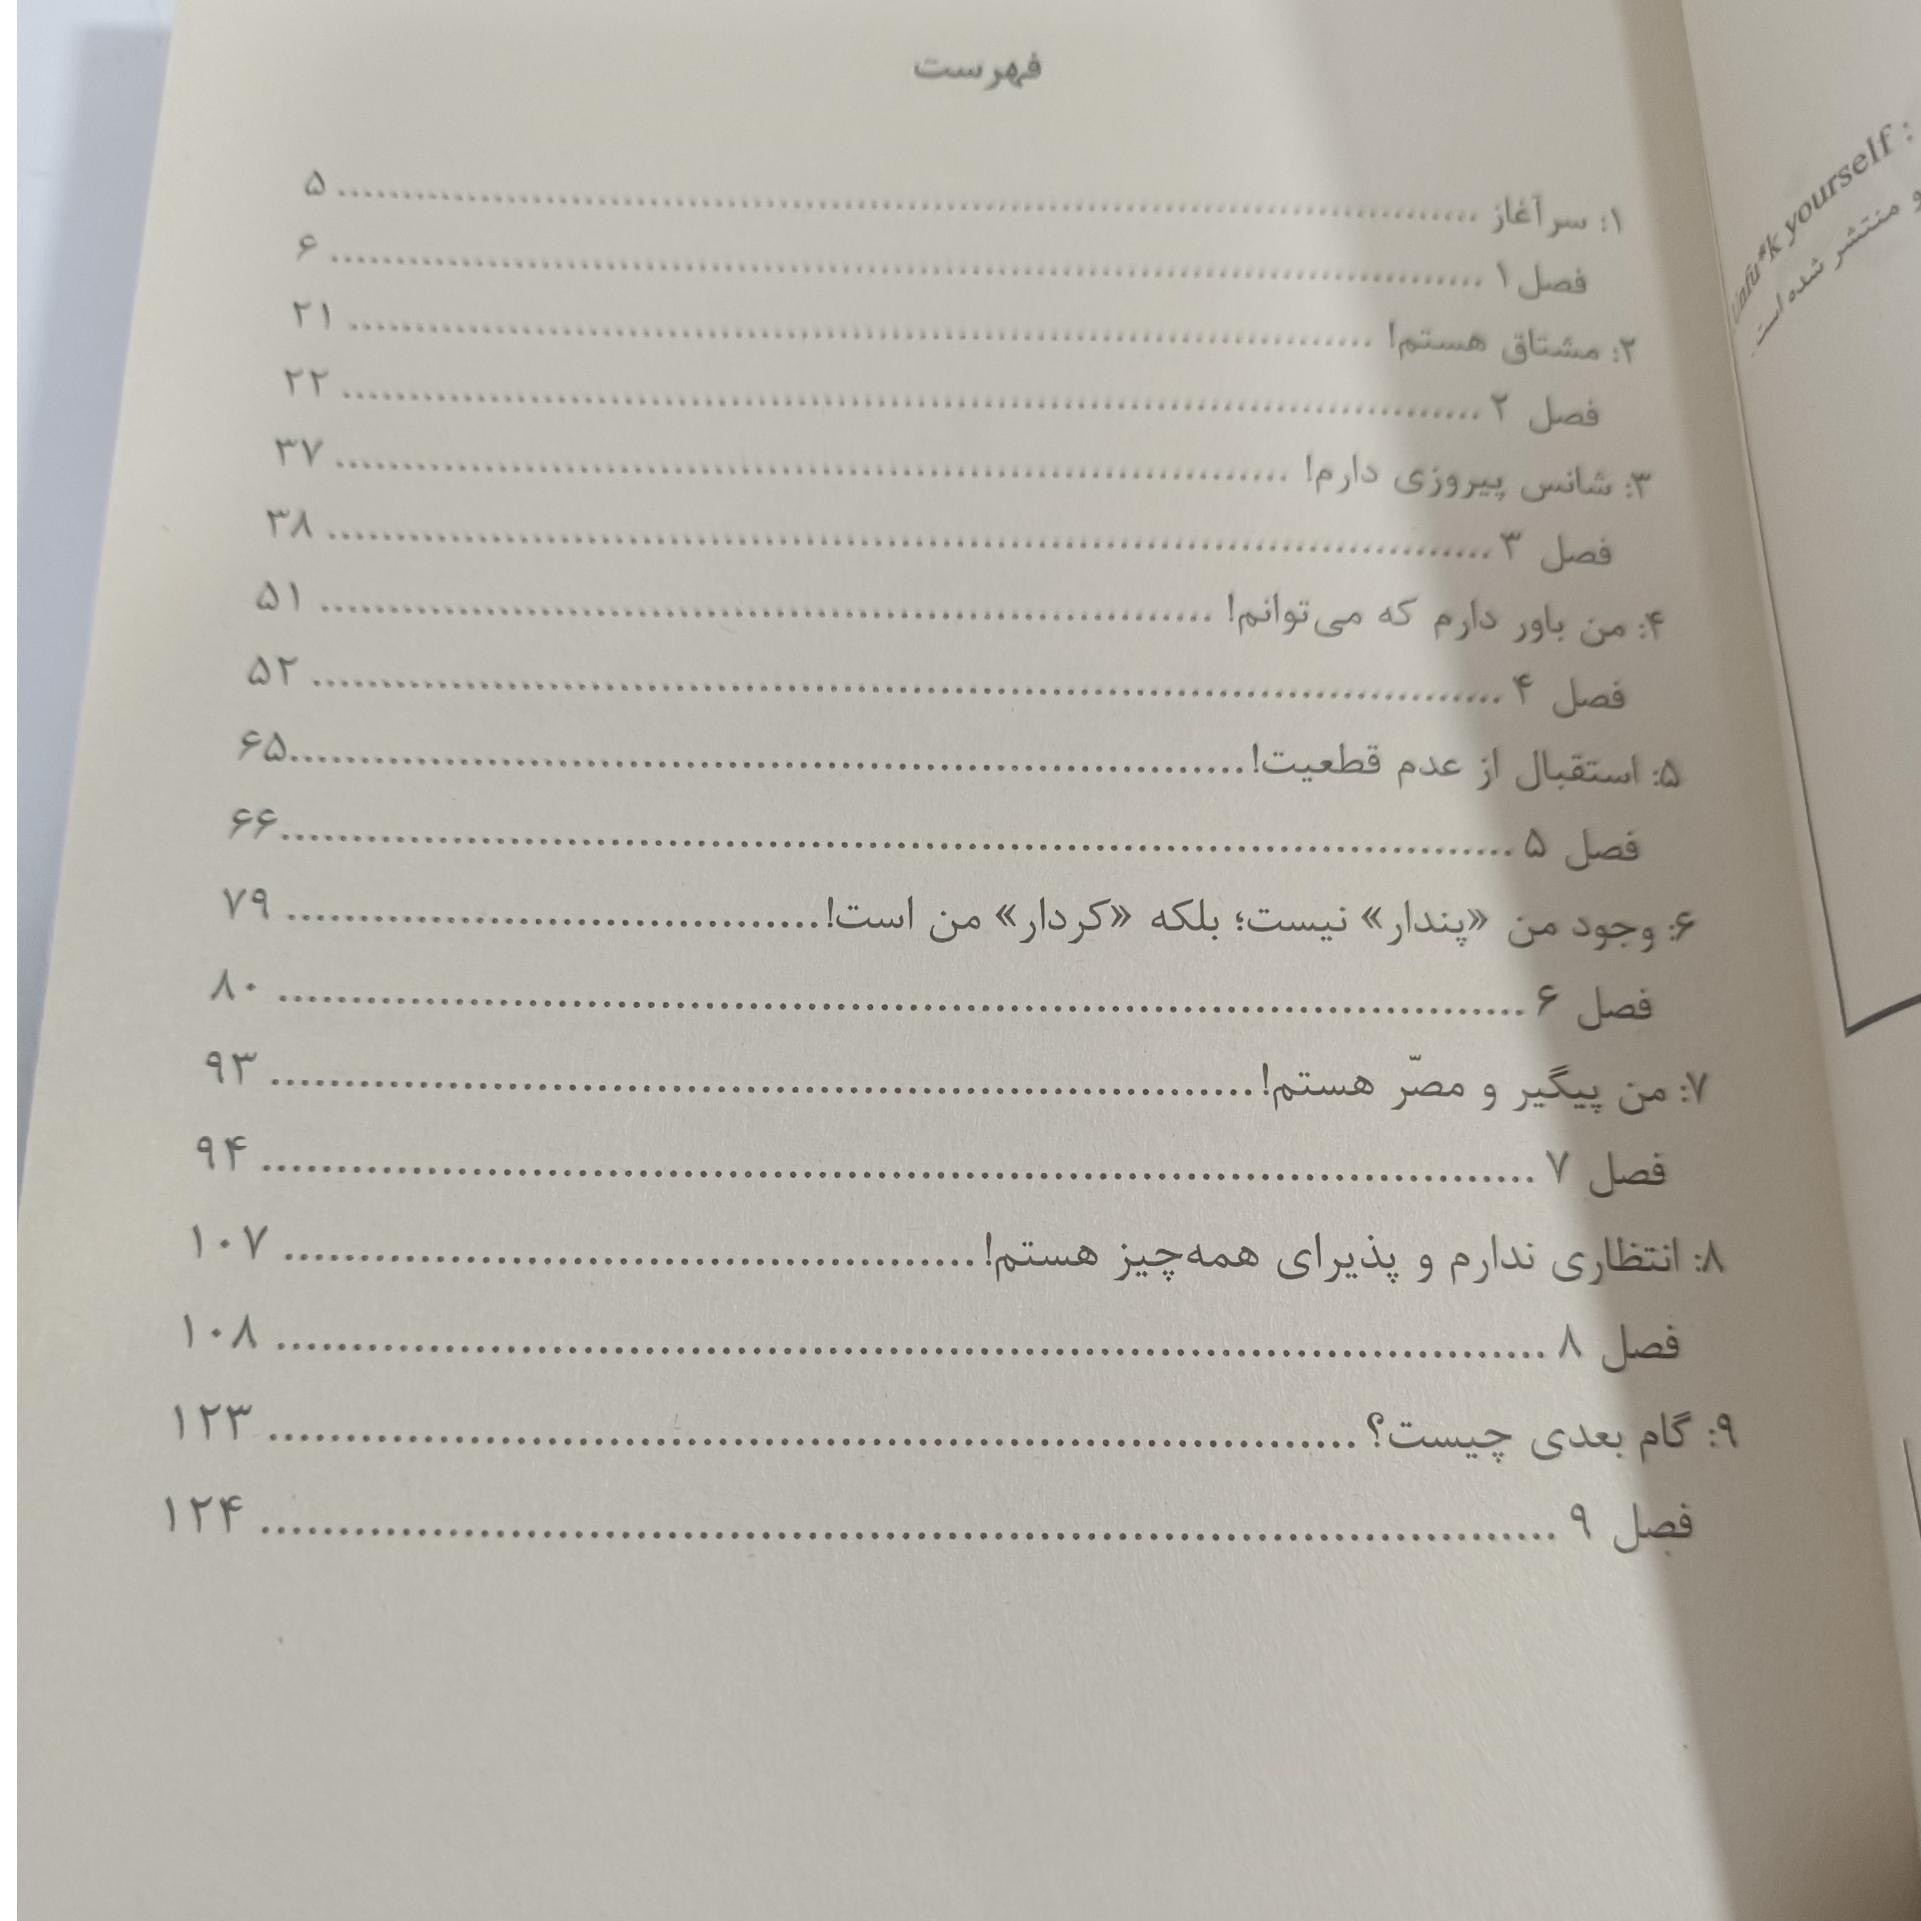 فهرست
۱: سرآغاز ........ ۵
فصل ۱ ........ ۶
۲: مشتاق هستم! ........ ۲۱
فصل ۲ ........ ۲۲
۳: شانس پیروزی دارم! ........ ۳۷
فصل ۳ ........ ۳۸
۴: من باور دارم که می‌توانم! ........ ۵۱
فصل ۴ ........ ۵۲
۵: استقبال از عدم قطعیت! ........ ۶۵
فصل ۵ ........ ۶۶
۶: وجود من «پندار» نیست؛ بلکه «کردار» من است! ........ ۷۹
فصل ۶ ........ ۸۰
۷: من پیگیر و مصّر هستم! ........ ۹۳
فصل ۷ ........ ۹۴
۸: انتظاری ندارم و پذیرای همه‌چیز هستم! ........ ۱۰۷
فصل ۸ ........ ۱۰۸
۹: گام بعدی چیست؟ ........ ۱۲۳
فصل ۹ ........ ۱۲۴
Unfu*k yourself :
و منتشر شده است.